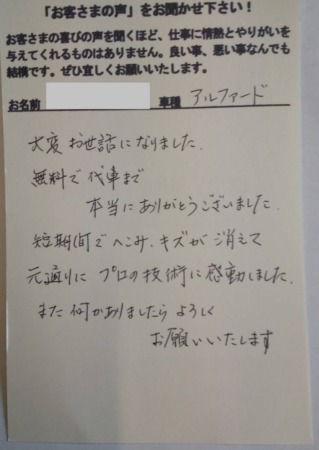 「お客さまの声」をお聞かせ下さい！
お客さまの喜びの声を聞くほど、仕事に情熱とやりがいを
与えてくれるものはありません。良い事、悪い事なんでも
結構です。ぜひ宜しくお願いいたします。
お名前 車種 アルファード
大変お世話になりました.
無料で代車まで
本当にありがとうございました.
短期間でへこみ、キズが消えて
元通りに プロの技術に感動しました.
また何かありましたら よろしく
お願いいたします